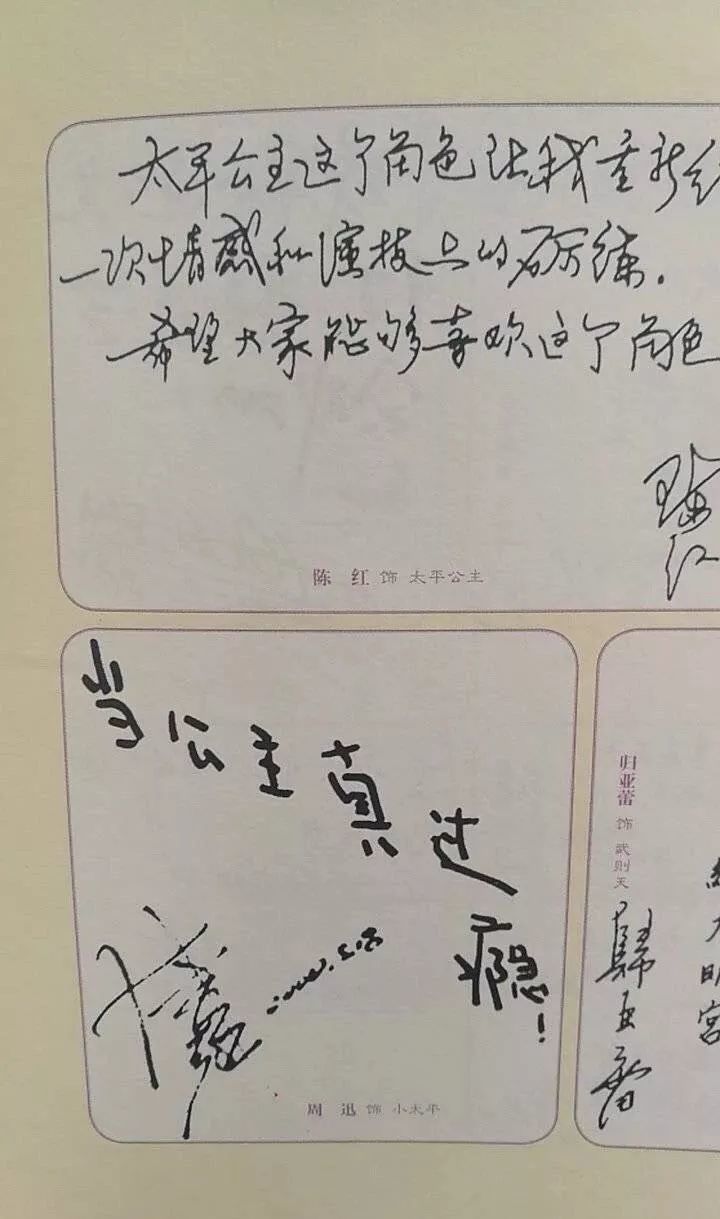 太平公主这个角色让我重新经
一次情感和演技上的砺练.
希望大家能够喜欢这个角色
陈红
陈 红 饰 太平公主
当公主真过瘾!
周 迅 饰 小太平
归亚蕾 饰 武则天
歸亞蕾
大明宫